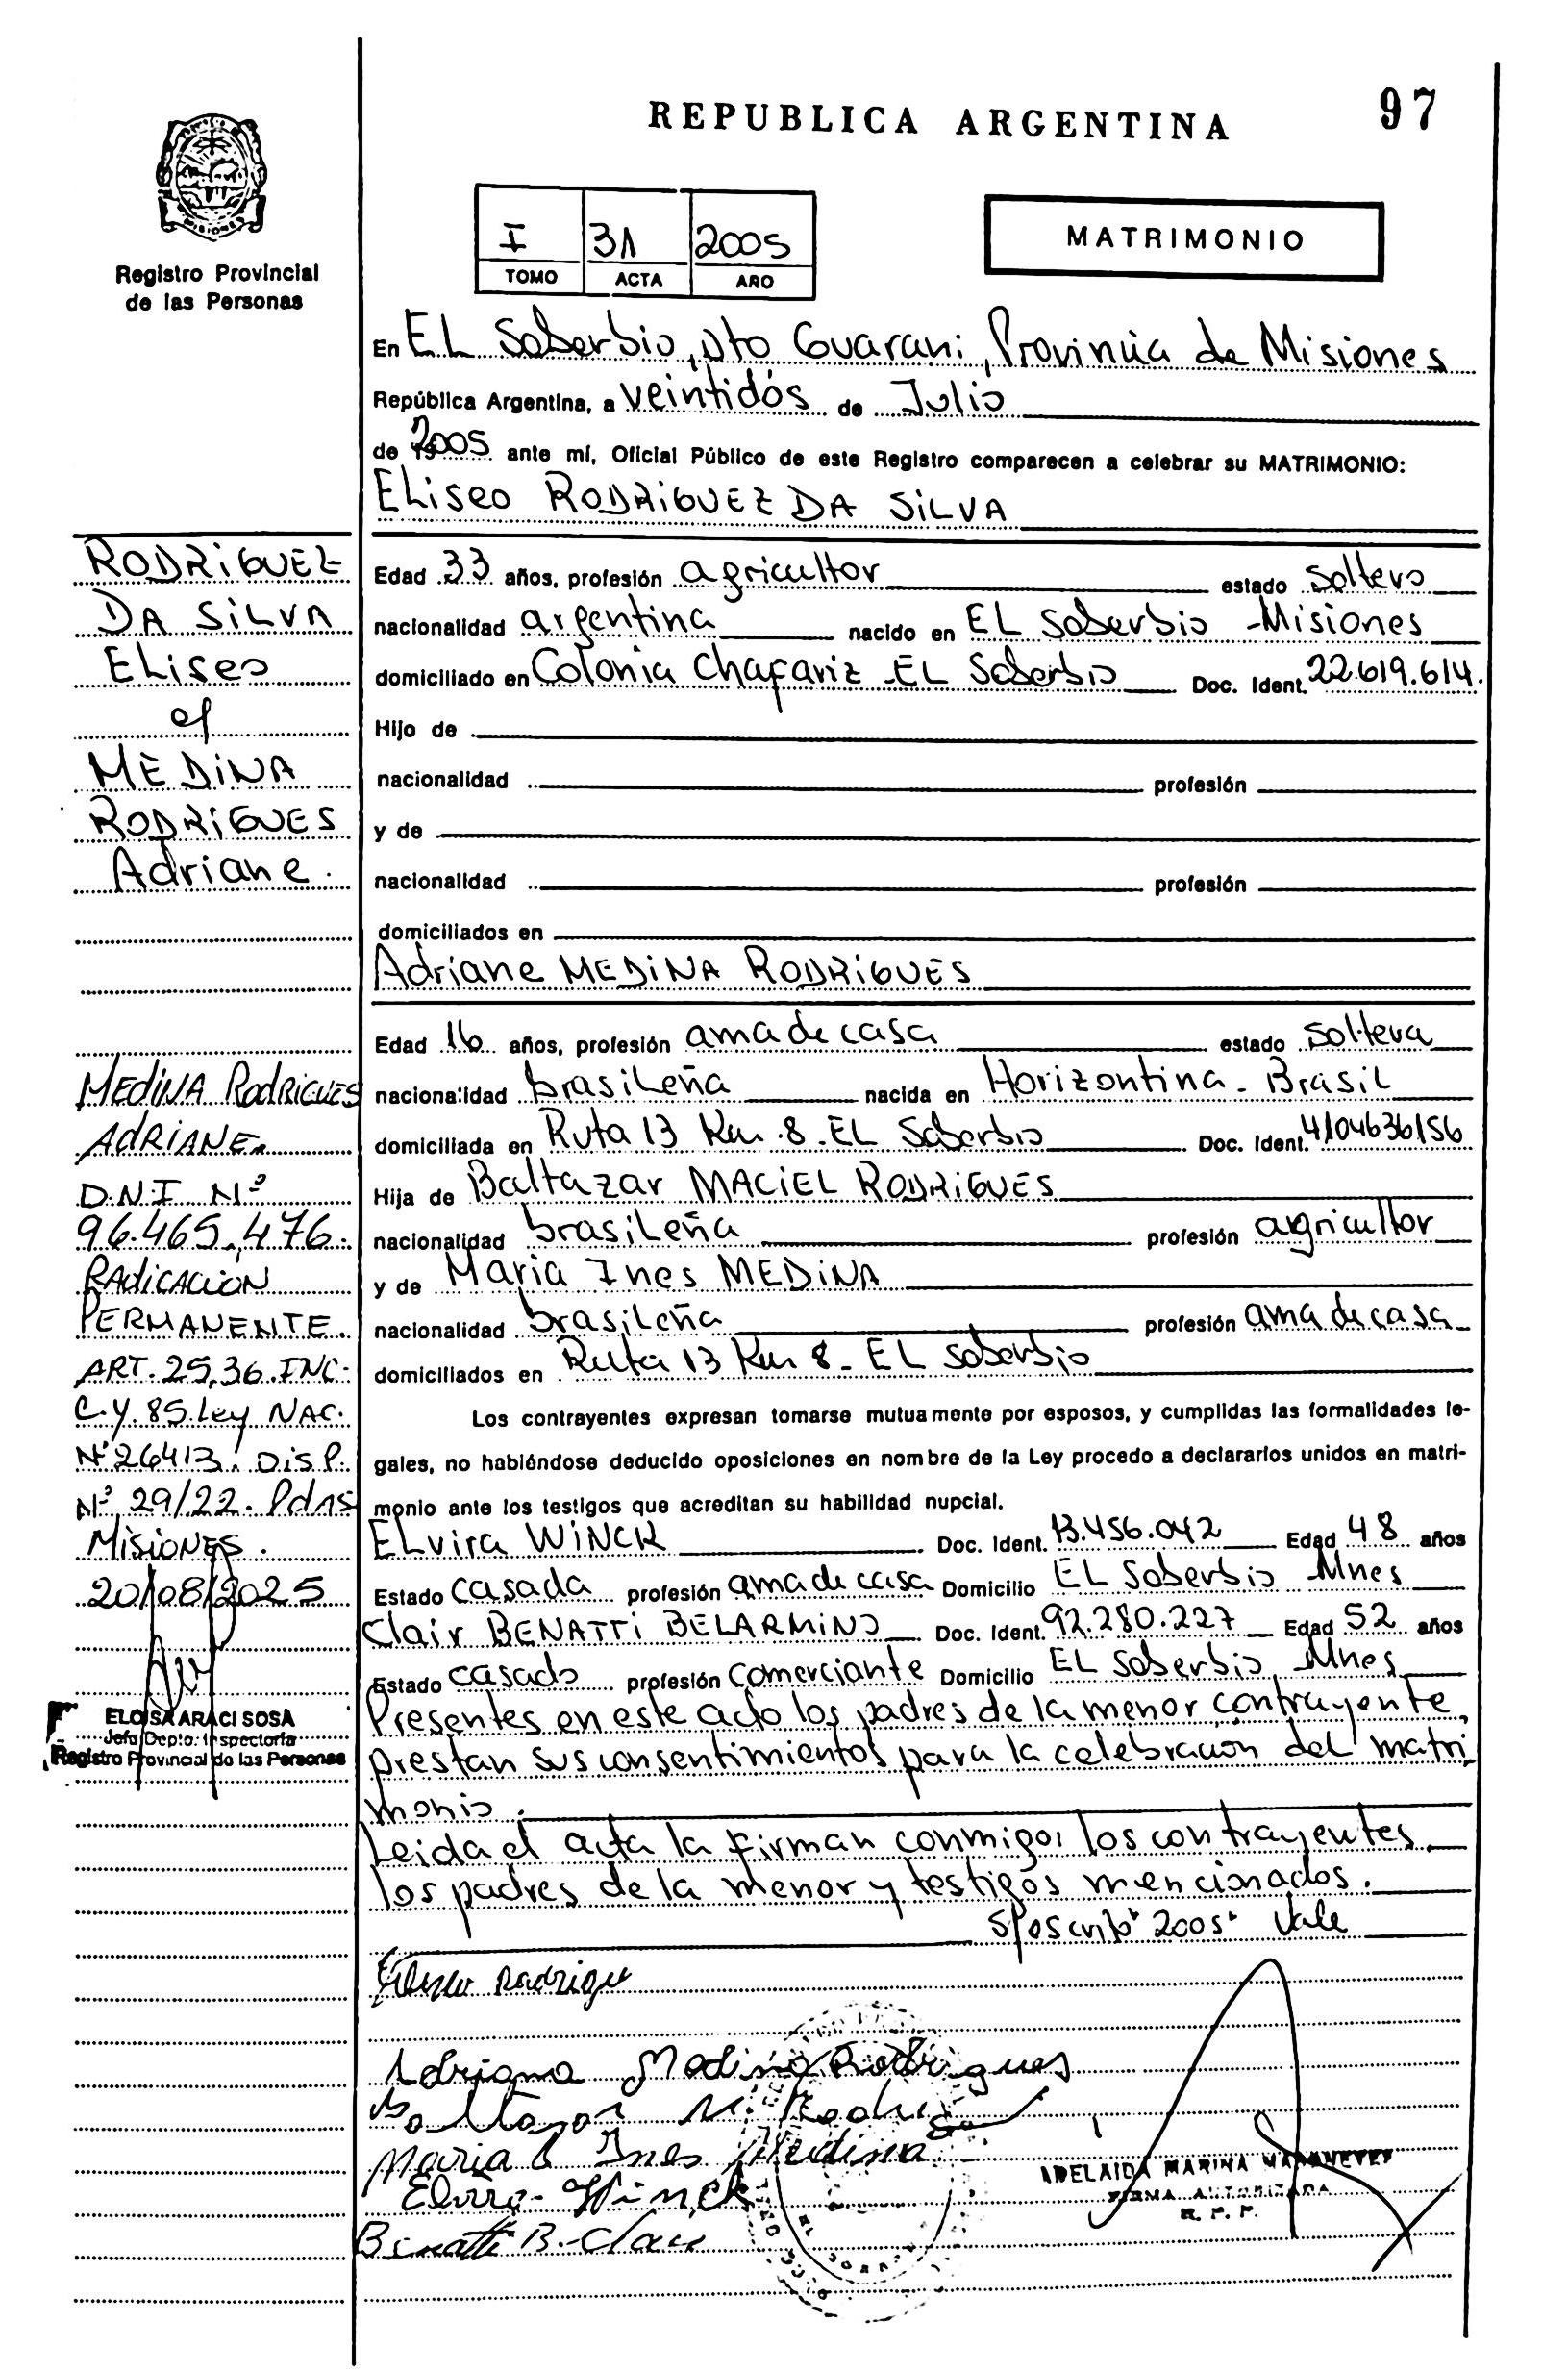 REPUBLICA ARGENTINA
97
MISIONES
Registro Provincial
de las Personas
I 31 2005
TOMO ACTA AÑO
MATRIMONIO
En EL Soberbio, Dto Guarani, Provincia de Misiones
República Argentina, a veintidós de Julio
de 2005 ante mí, Oficial Público de este Registro comparecen a celebrar su MATRIMONIO:
Eliseo RODRiGUEZ DA SiLVA
Edad 33 años, profesión agricultor estado soltero
nacionalidad argentina nacido en EL Soberbio - Misiones
domiciliado en Colonia Chafariz EL Soberbio Doc. Ident. 22.619.614.
Hijo de
nacionalidad profesión
y de
nacionalidad profesión
domiciliados en
Adriane MEDiNA RODRiGUES
Edad 16 años, profesión ama de casa estado soltera
nacionalidad brasileña nacida en Horizontina - Brasil
domiciliada en Ruta 13 Km. 8. EL Soberbio Doc. Ident. 4104636156
Hija de Baltazar MACiEL RODRiGUES
nacionalidad brasileña profesión agricultor
y de Maria Ines MEDiNA
nacionalidad brasileña profesión ama de casa
domiciliados en Ruta 13 Km 8 - EL Soberbio
Los contrayentes expresan tomarse mutuamente por esposos, y cumplidas las formalidades le-
gales, no habiéndose deducido oposiciones en nombre de la Ley procedo a declararlos unidos en matri-
monio ante los testigos que acreditan su habilidad nupcial.
ELvira WiNCK Doc. Ident. 13.456.042 Edad 48 años
Estado casada profesión ama de casa Domicilio EL Soberbio Mnes
Clair BENATTi BELARMiNO Doc. Ident. 92.280.227 Edad 52 años
Estado casado profesión Comerciante Domicilio EL Soberbio, Mnes
Presentes en este acto los padres de la menor contrayente,
prestan sus consentimientos para la celebracion del matri
monio.
Leida el acta la firman conmigo, los contrayentes,
los padres de la menor y testigos mencionados.
S/oscrito "2005" Vale
RODRiGUEZ
DA SiLVA
ELiseo
c/
MEDiNA
RODRiGUES
Adriane.
MEDiNA RodRiGUES
ADRiANE.
D.N.I Nº
96.465.476.
RAdiCACiON
PERMANENTE.
ART. 25,36. INC.
C.Y. 85 Ley NAC.
Nº 26413. DisP.
Nº 29/22. Pdas
MisioNES.
20/08/2025
ELOISA ARACI SOSA
Jefa Depto. Inspectoría
Registro Provincial de las Personas
Eliseo Rodrigue
Adriana Medina Rodrigues
Baltazar M. Rodri
Maria Ines Medina
Elvira Winck
Benatti B. Clair
ADELAIDA MARINA
FIRMA AUTORIZADA
R. P. P.